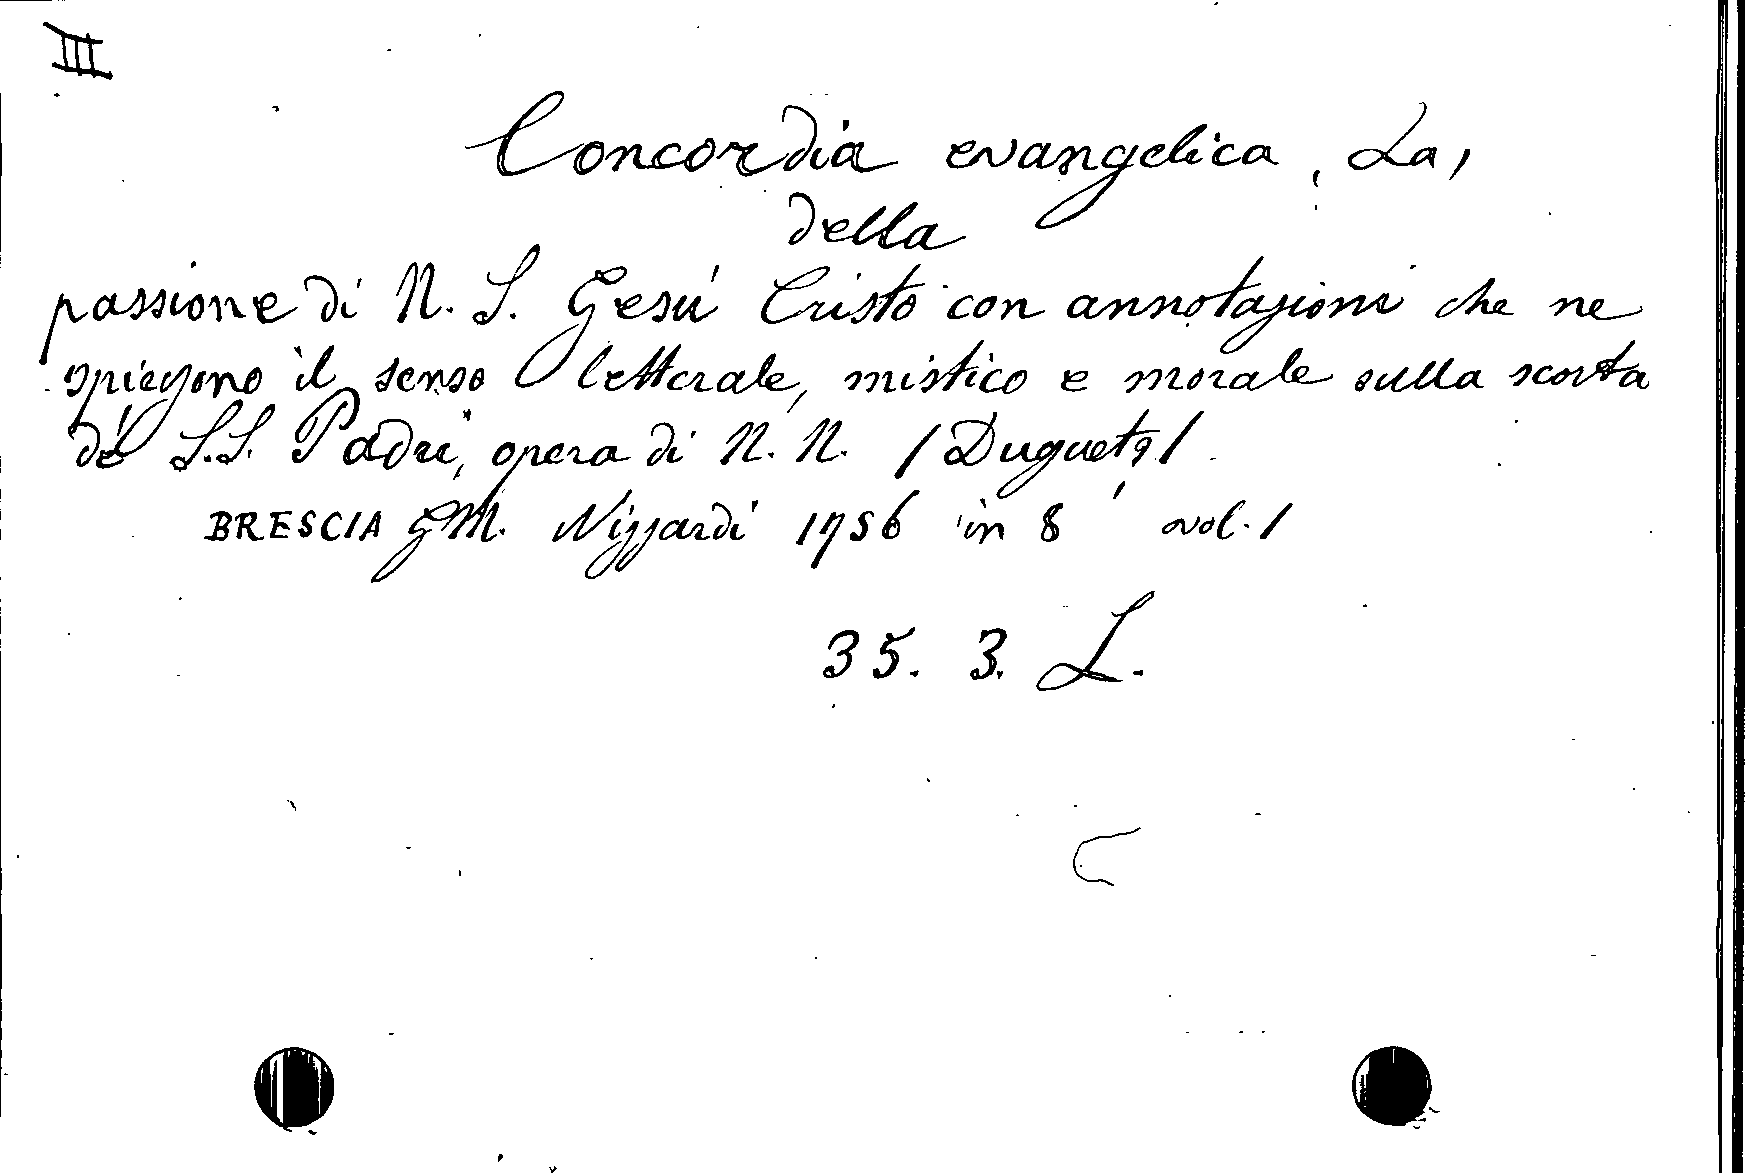 III
Concordia evangelica, La,
della
passione di N. S. Gesú Cristo con annotazioni che ne
spiegono il senso letterale, mistico e morale sulla scorta
de' S.S. Padri, opera di N. N. / Duguet? /
BRESCIA G.M. Rizzardi 1756 in 8° vol. 1
35. 3. L.